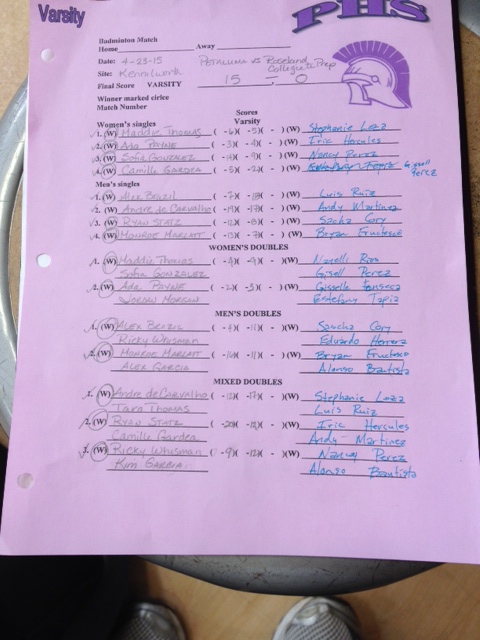 Varsity
PHS
Badminton Match
Home Away
Date: 4-23-15 Petaluma vs Roseland
Site: Kenilworth Collegiate Prep
Final Score VARSITY 15 - 0
Winner marked cirlce
Match Number
Scores
Women's singles Varsity
1. (W) Maddie Thomas ( -6)( -5)( - ) (W) Stephanie Loza
2. (W) Ada Payne ( -3)( -4)( - ) (W) Iric Hercules
3. (W) Sofia Gonzalez ( )( )( - ) (W) Nancy Perez
4. (W) Camille Gardea ( -5)( -2)( - ) (W) Gisell Perez
Men's singles
1. (W) Alex Brazil ( -7)( )( - ) (W) Luis Ruiz
2. (W) Andre de Carvalho ( -19)( -17)( - ) (W) Andy Martinez
3. (W) Ryan Statz ( )( )( - ) (W) Sascha Cory
4. (W) Monroe Marlatt ( -13)( -7)( - ) (W) Bryan Fructoso
WOMEN'S DOUBLES
1. (W) Maddie Thomas ( -4)( -9)( - ) (W) Nayelli Rios
Sofia Gonzalez Gisell Perez
2. (W) Ada Payne ( -2)( -3)( - ) (W) Gisselle Fonseca
Jordan Morgan Estefany Tapia
MEN'S DOUBLES
1. (W) Alex Brazil ( )( -11)( - ) (W) Sascha Cory
Ricky Whisman Eduardo Herrera
2. (W) Monroe Marlatt ( )( -11)( - ) (W) Bryan Fructoso
Alex Garcia Alonso Bautista
MIXED DOUBLES
1. (W) Andre de Carvalho ( -12)( -17)( - ) (W) Stephanie Loza
Tara Thomas Luis Ruiz
2. (W) Ryan Statz ( -20)( )( - ) (W) Iric Hercules
Camille Gardea Andy Martinez
3. (W) Ricky Whisman ( -9)( -12)( - ) (W) Nancy Perez
Kim Garcia Alonso Bautista